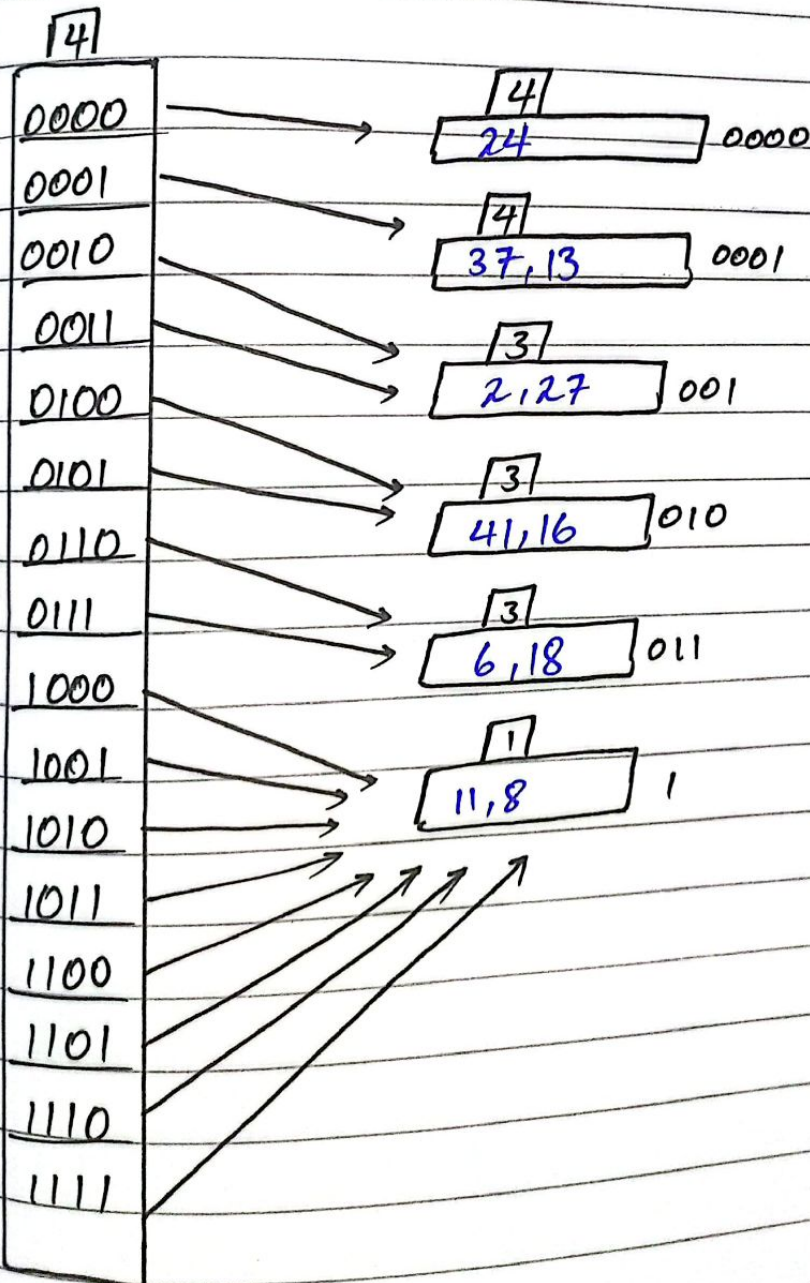 4
0000
0001
0010
0011
0100
0101
0110
0111
1000
1001
1010
1011
1100
1101
1110
1111
4
24 0000
4
37,13 0001
3
2,27 001
3
41,16 010
3
6,18 011
1
11,8 1